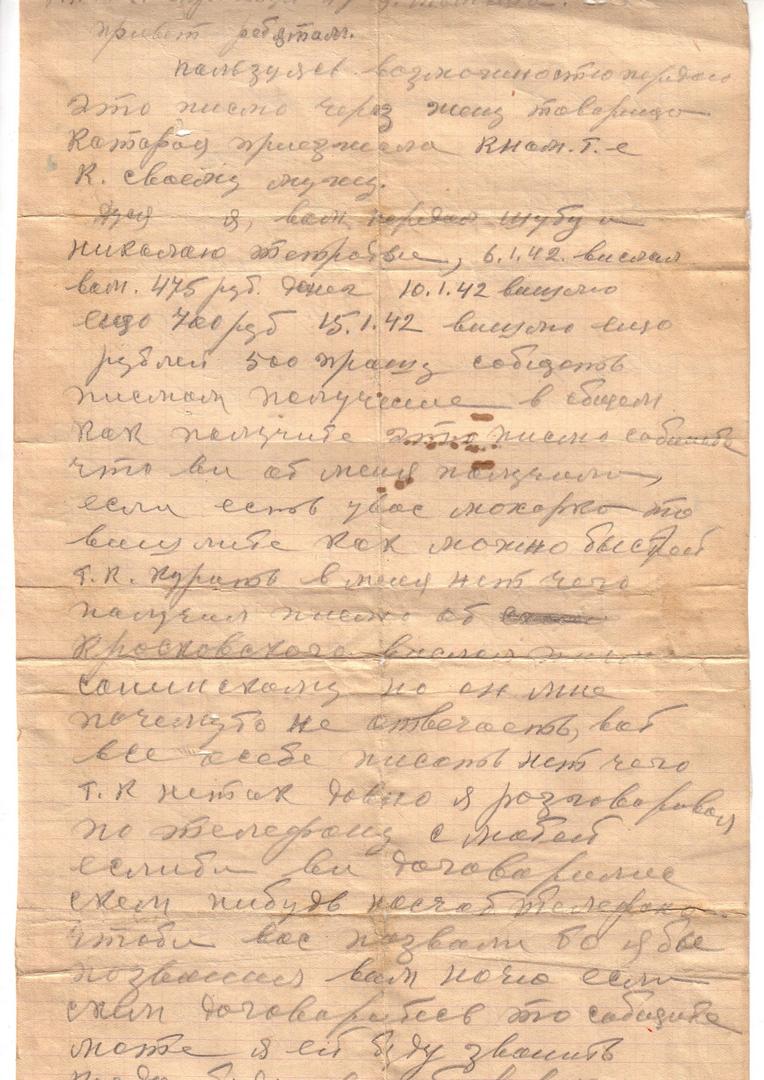 привет ребятам.
пользуяся возможностю передаю
это писмо через жену товарища
Которая приезжала К нам. т-е
К. своему мужу.
я, вам передал шубу и
николаю, 6.1.42. выслал
вам. 475 руб. денег 10.1.42 вышлю
ещо 700 руб 15.1.42 вышлю ещо
рублей 500 прашу собщеть
писмом получение в общем
как получите это писмо собщите
что ви от меня получили,
если есть увас махорка то
вишлите как можно быстрей
т.к. курить вменя нет чего
получил писмо от
выслал
но он мне
почемуто не отвечаеть, вот
все осебе писать нет чего
т.к нетак давно я розговаривал
по телефону с мотей
еслиби ви договорились
скем нибудь насчот телефона
чтоби вас позвали то я бы
позвонил вам ночю если
скем договоритесь то собщите
може я ей буду звонить